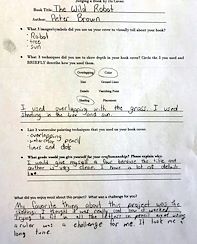 Judging a Book by Its Cover
Book Title: The Wild Robot
Author: Peter Brown
• What 3 images/symbols did you use on your cover to visually tell about your book?
- Robot
- tree
- sun
• What 3 techniques did you use to show depth in your book cover? Circle the 3 you used and BRIEFLY describe how you used them.
Overlapping Color
Size Ground Lines
Details Vanishing Point
Shading Placement
I used overlapping with the grass. I used
shading in the tree and sun.
• List 3 watercolor painting techniques that you used on your book cover.
- overlapping
- watercolor pencil
- lines and dots
• What grade would you give yourself for your craftsmanship? Please explain why.
I would give myself a four because the title and
author is very clean. I have a lot of detail
What did you enjoy most about this project? What was a challenge for you?
My favorite thing about this project was the
shading. I thought it was really cool how it worked.
a ruler was a challenge for me. It took me a
long time.